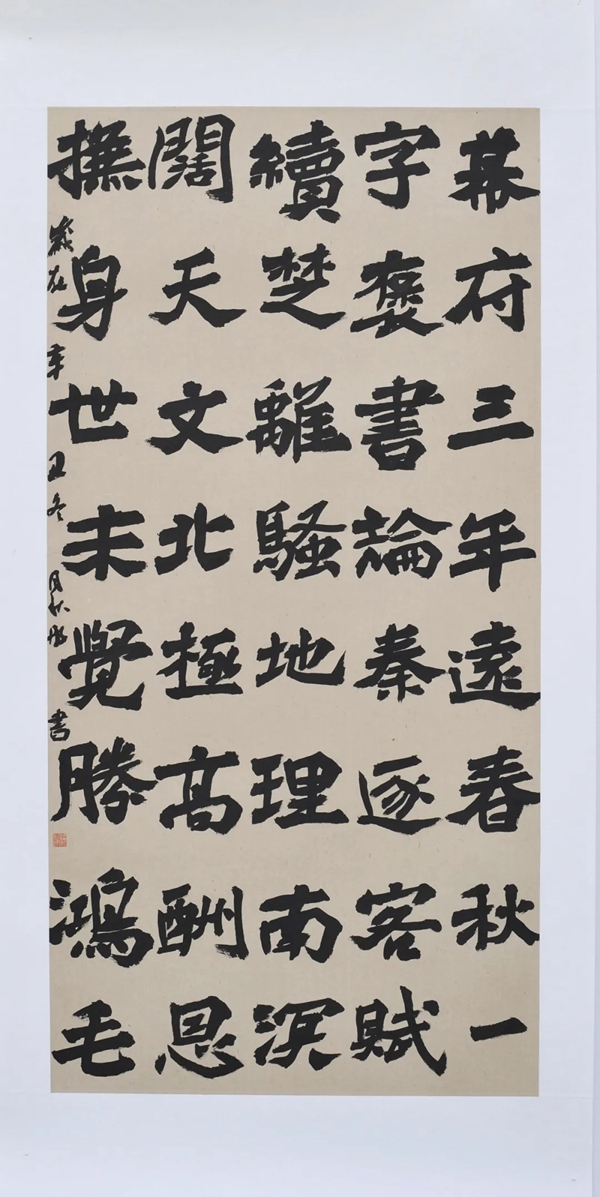 幕府三年遠春秋一
字褒書論秦逐客賦
續楚離騷地理南溟
闊天文北極高酬恩
撫身世未覺勝鴻毛
歲在辛丑冬月 書